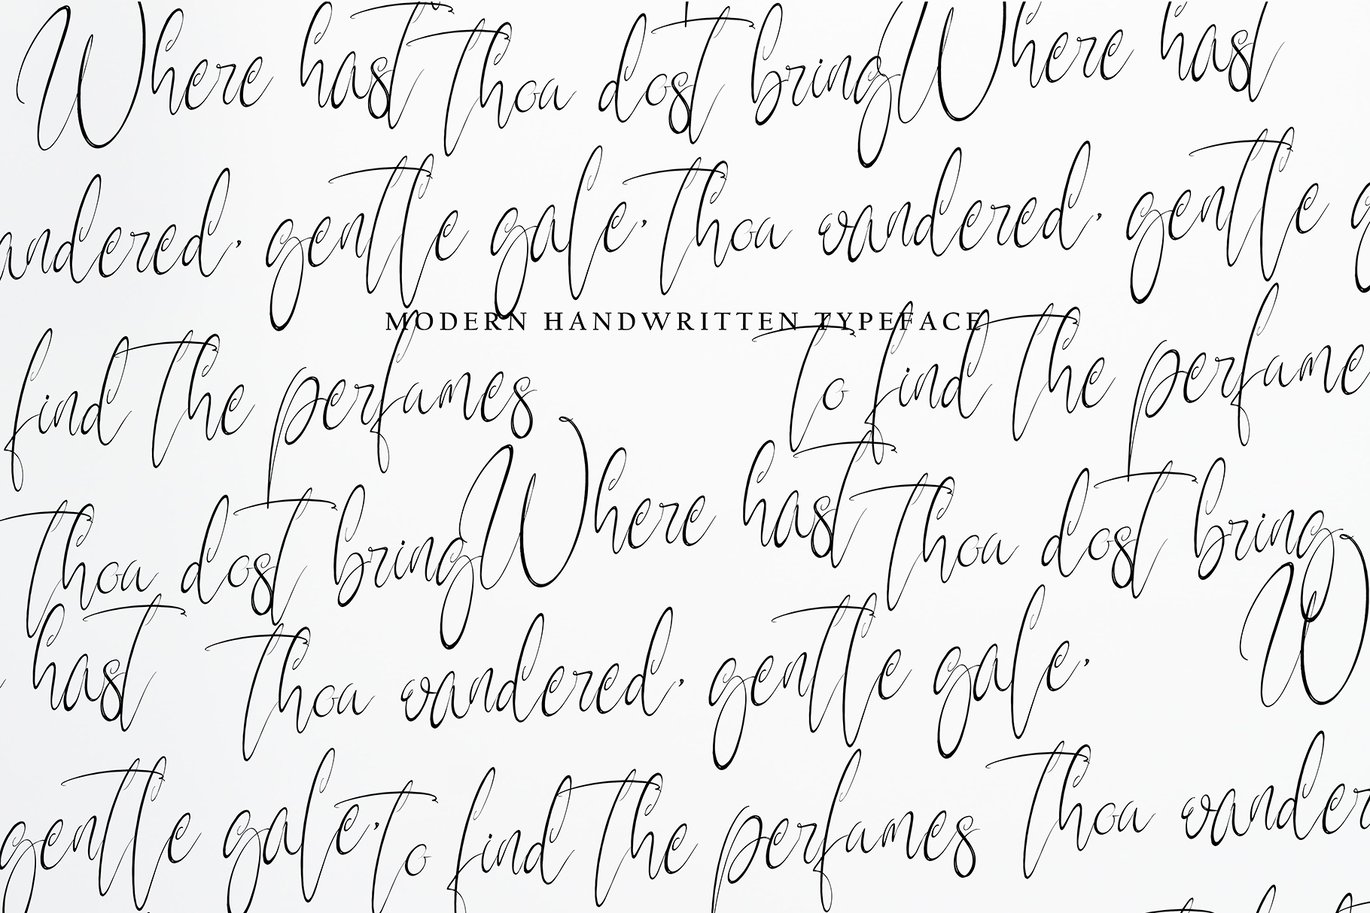 Where hast thou dost bring Where hast
andered, gentle gale, thou wandered, gentle g
MODERN HANDWRITTEN TYPEFACE
find the perfumes To find the perfume
thou dost bring Where hast thou dost bring
hast thou wandered, gentle gale, W
gentle gale, To find the perfumes thou wander